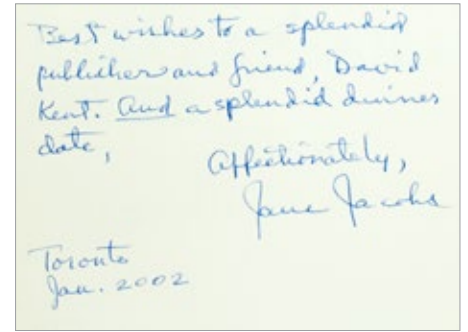 Best wishes to a splendid
publisher and friend, David
Kent. And a splendid dinner
date,
Affectionately,
Jane Jacobs
Toronto
Jan. 2002